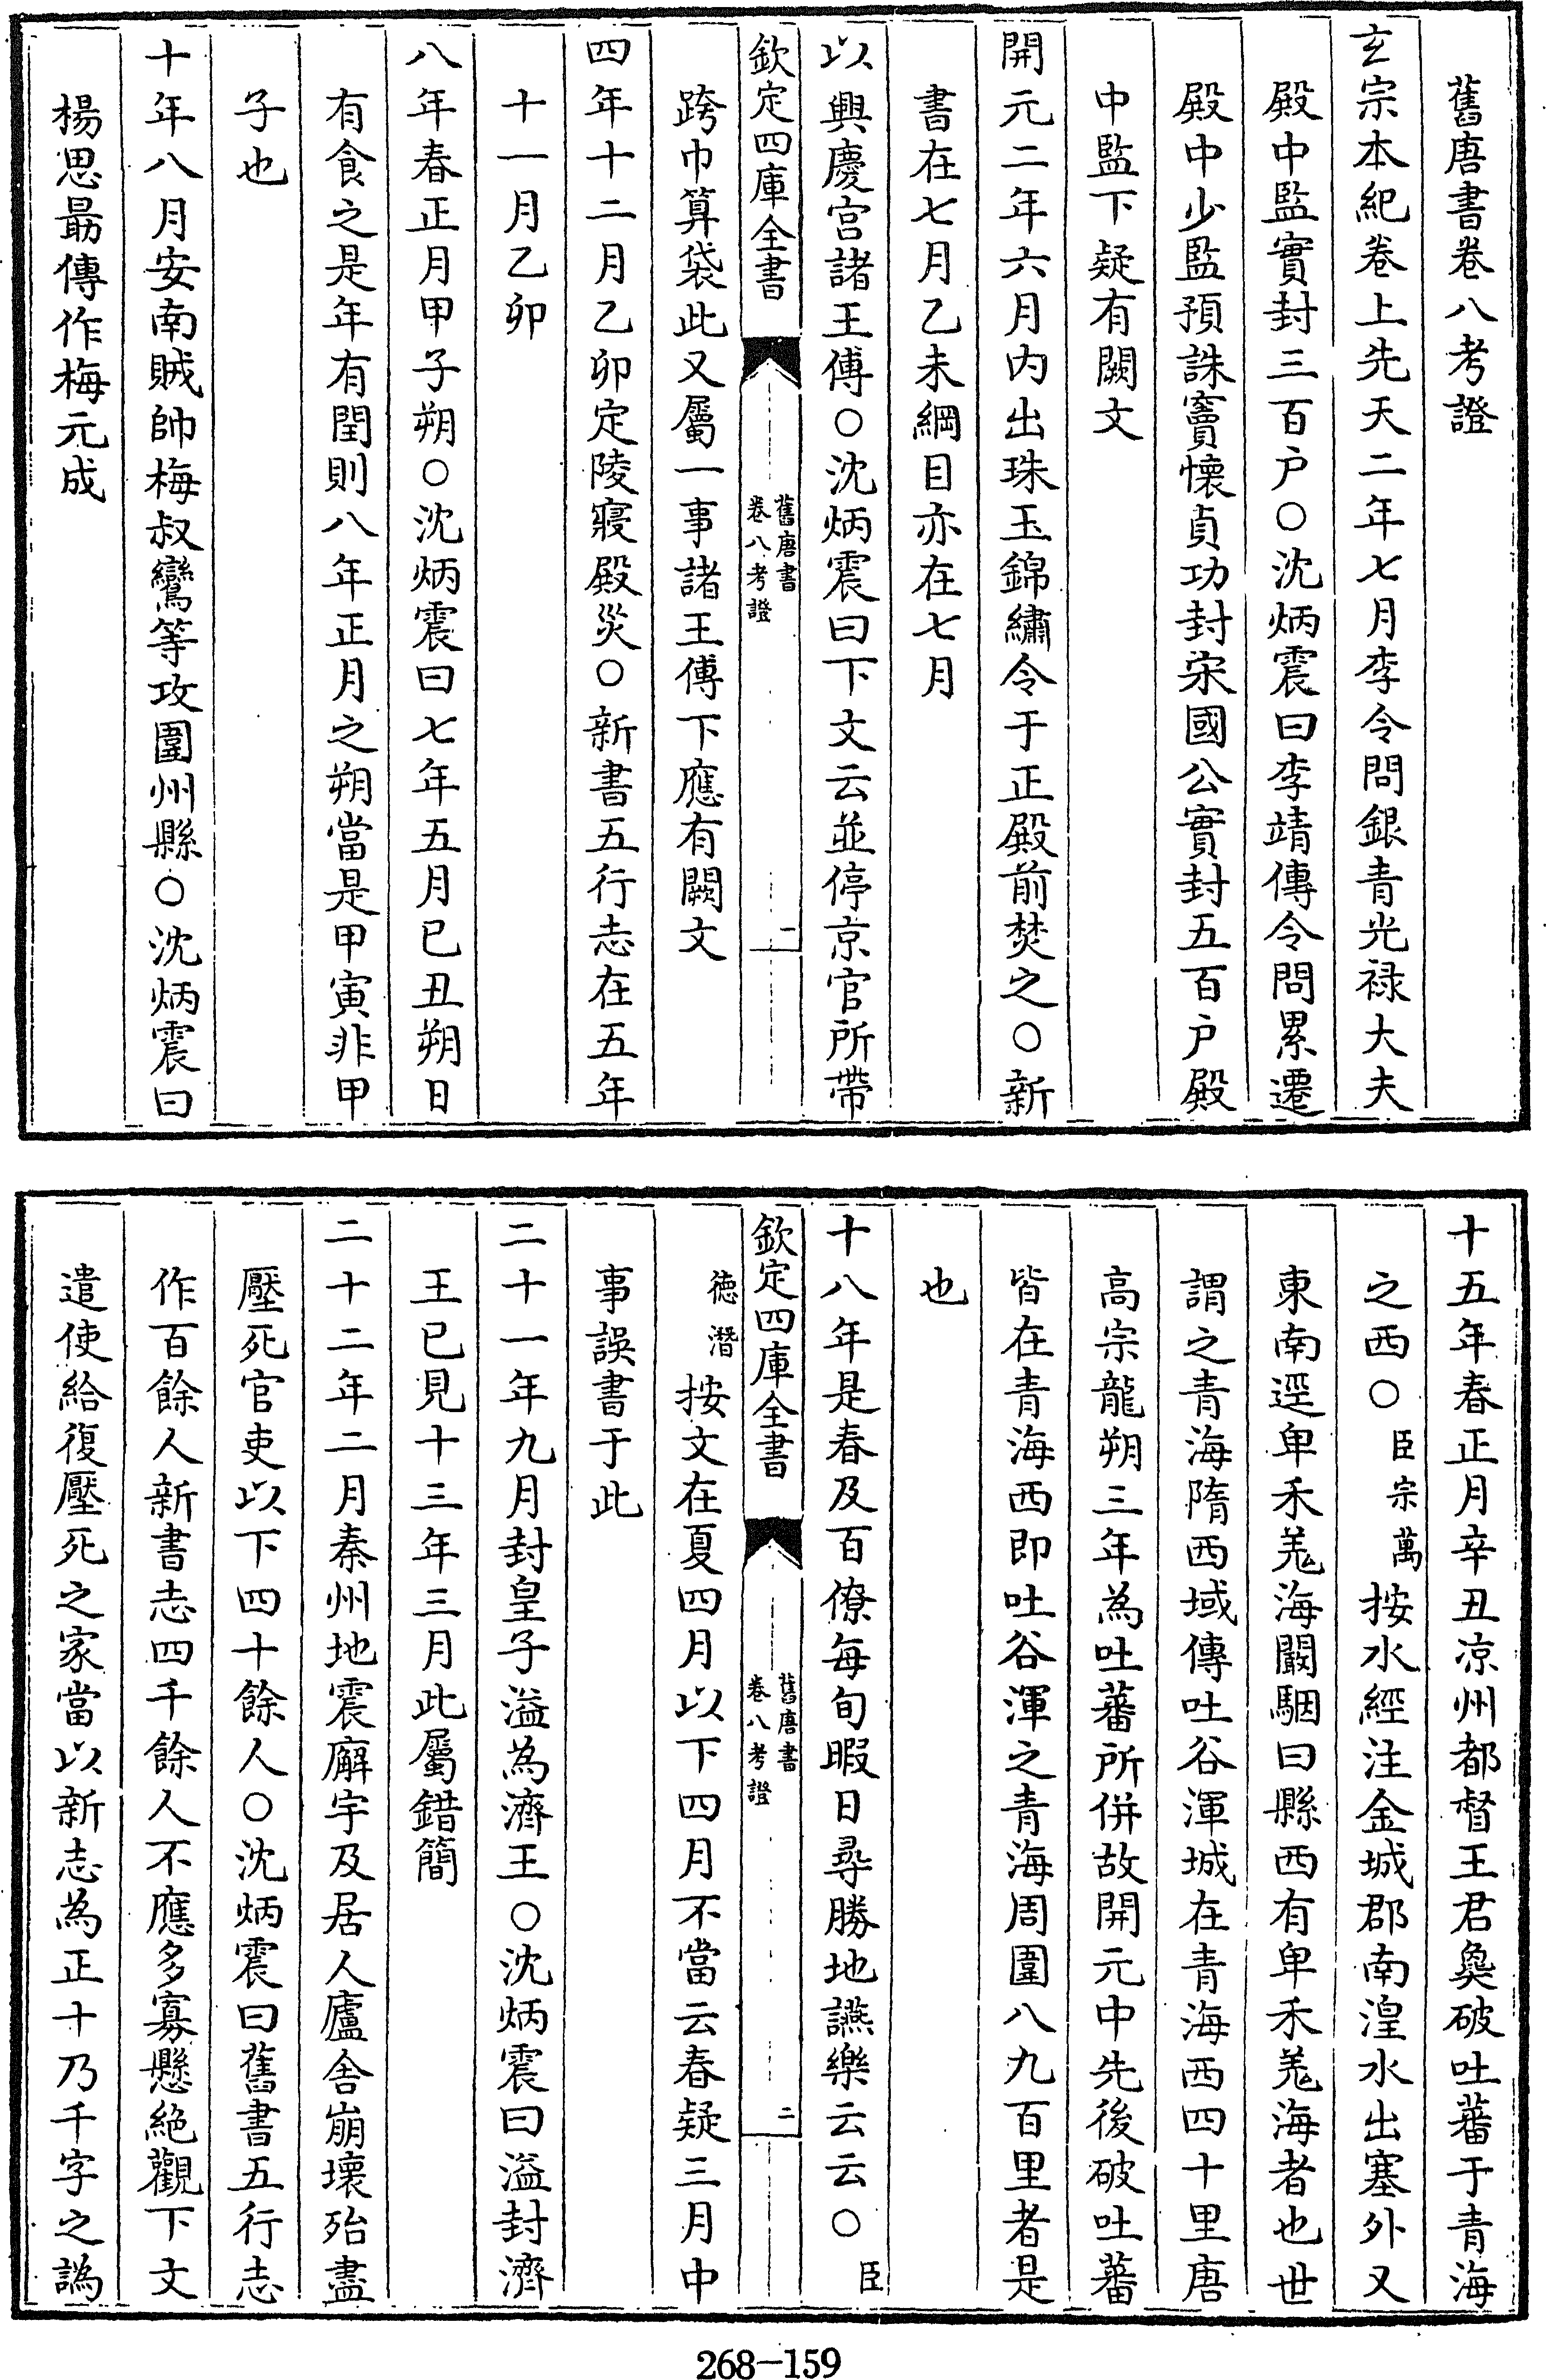 舊唐書卷八考證
玄宗本紀卷上先天二年七月李令問銀青光禄大夫
殿中監實封三百户○沈炳震曰李靖傳令問累遷
殿中少監預誅竇懷貞功封宋國公實封五百户殿
中監下疑有闕文
開元二年六月内出珠玉錦繡令于正殿前焚之○新
書在七月乙未綱目亦在七月
以興慶宫諸王傅○沈炳震曰下文云並停京官所帶
欽定四庫全書
舊唐書
卷八考證
一
跨巾算袋此又屬一事諸王傅下應有闕文
四年十二月乙卯定陵寢殿災○新書五行志在五年
十一月乙卯
八年春正月甲子朔○沈炳震曰七年五月已丑朔日
有食之是年有閏則八年正月之朔當是甲寅非甲
子也
十年八月安南賊帥梅叔鸞等攻圍州縣○沈炳震曰
楊思勗傳作梅元成
十五年春正月辛丑凉州都督王君㚟破吐蕃于青海
之西○臣宗萬按水經注金城郡南湟水出塞外又
東南逕卑禾羌海闞駰曰縣西有卑禾羌海者也世
謂之青海隋西域傳吐谷渾城在青海西四十里唐
高宗龍朔三年為吐蕃所併故開元中先後破吐蕃
皆在青海西即吐谷渾之青海周圍八九百里者是
也
十八年是春及百僚每旬暇日尋勝地讌樂云云○臣
欽定四庫全書
舊唐書
卷八考證
二
德潛按文在夏四月以下四月不當云春疑三月中
事誤書于此
二十一年九月封皇子溢為濟王○沈炳震曰溢封濟
王已見十三年三月此屬錯簡
二十二年二月秦州地震廨宇及居人廬舍崩壞殆盡
壓死官吏以下四十餘人○沈炳震曰舊書五行志
作百餘人新書志四千餘人不應多寡懸絶觀下文
遣使給復壓死之家當以新志為正十乃千字之譌
268—159